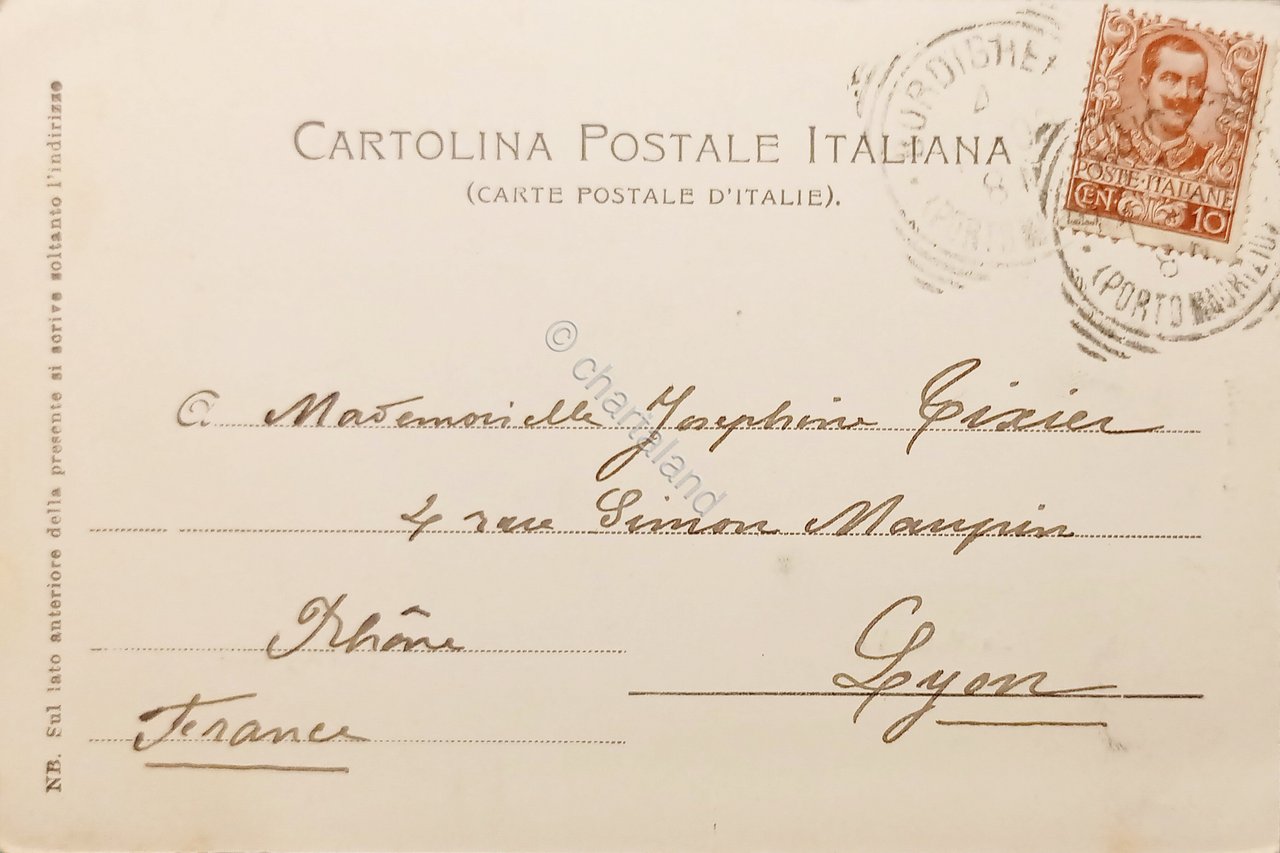 CARTOLINA POSTALE ITALIANA
(CARTE POSTALE D'ITALIE).
POSTE·ITALIANE
CEN· 10
(PORTO MAURIZIO)
8
(PORTO M
8
A Mademoiselle Josephine Tixier
4 rue Simon Maupin
Rhône
Lyon
France
NB. Sul lato anteriore della presente si scrive soltanto l'indirizzo
© chartaland